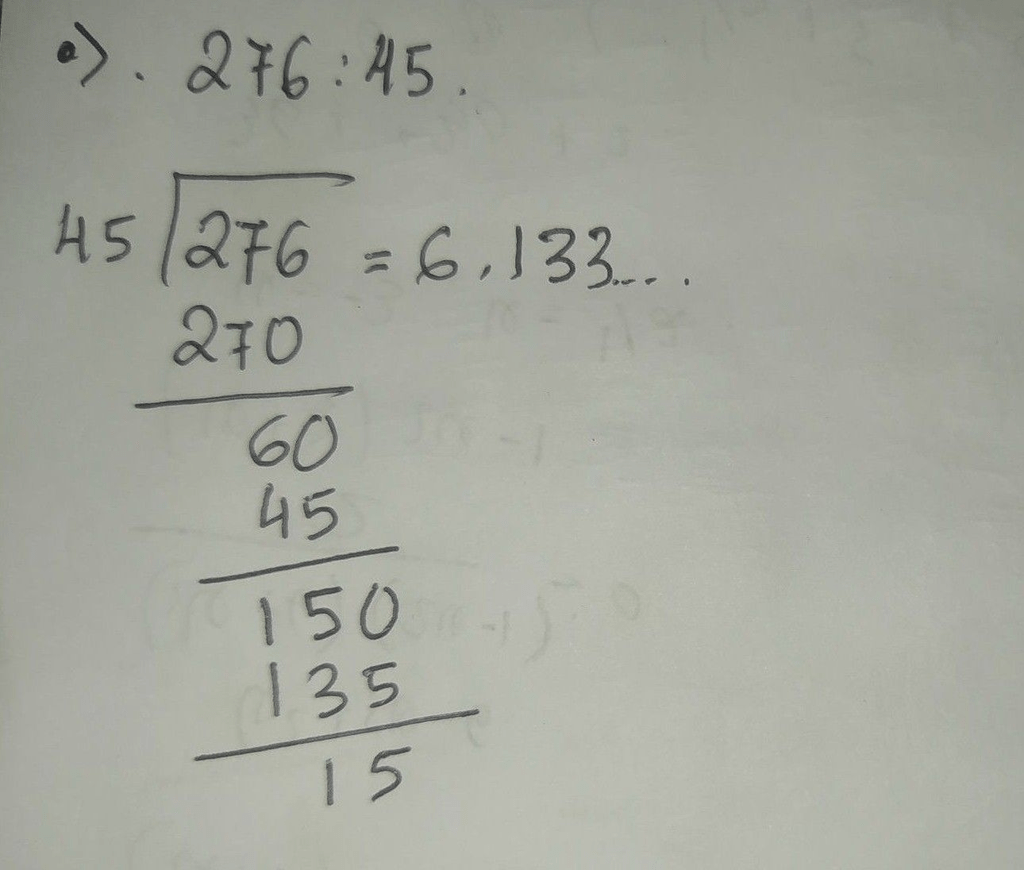 a). 276:45.
45 276 = 6,133....
270
60
45
150
135
15